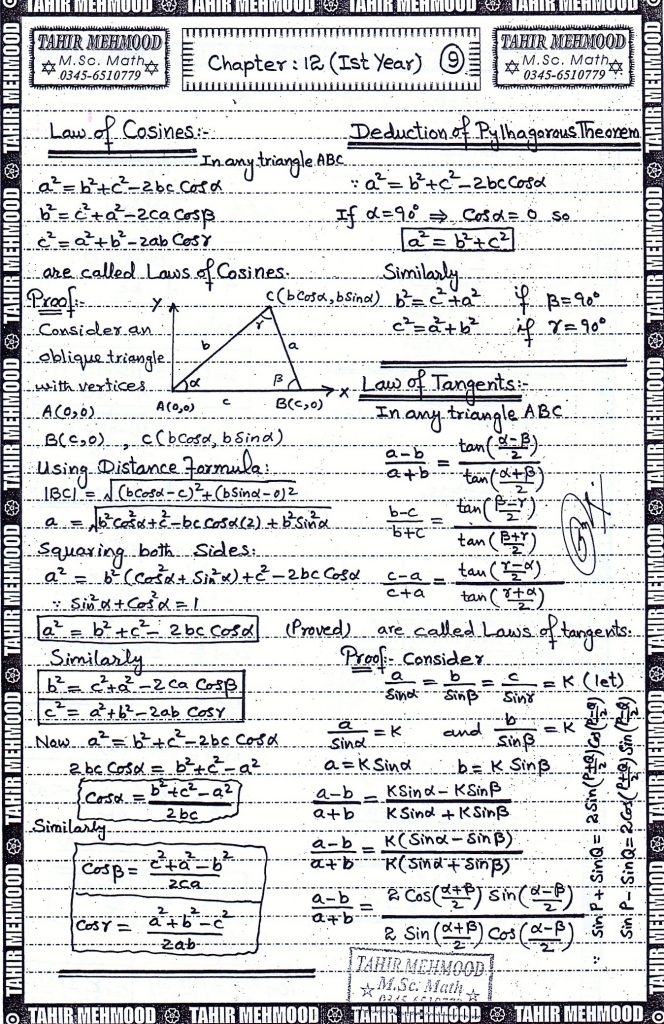 TAHIR MEHMOOD
M.Sc. Math
0345-6510779
Chapter : 12 (Ist Year) 9
TAHIR MEHMOOD
M.Sc. Math
0345-6510779
Law of Cosines:-
In any triangle ABC
a² = b²+c²-2bc Cosα
b² = c²+a²-2ca Cosβ
c² = a²+b²-2ab Cosγ
are called Laws of Cosines.
Proof:-
Consider an
oblique triangle
with vertices
A(0,0)
B(c,0) , c(bcosα, bsinα)
Y
C(bCosα, bSinα)
γ
b
a
α
β
X
A(0,0)
c
B(c,0)
Using Distance Formula:
|BC| = √(bcosα-c)²+(bsinα-0)²
a = √b²cos²α+c²-bc cosα(2)+b²sin²α
Squaring both Sides:
a² = b²(cos²α+Sin²α)+c²-2bc Cosα
∵ Sin²α+Cos²α = 1
a² = b²+c²-2bc Cosα (Proved)
Similarly
b² = c²+a²-2ca Cosβ
c² = a²+b²-2ab Cosγ
Now a² = b²+c²-2bc Cosα
2bc Cosα = b²+c²-a²
Cosα = b²+c²-a² / 2bc
Similarly
Cosβ = c²+a²-b² / 2ca
Cosγ = a²+b²-c² / 2ab
Deduction of Pythagorous Theorem
∵ a² = b²+c²-2bc Cosα
If α=90° ⇒ Cosα = 0 so
a² = b²+c²
Similarly
b² = c²+a² if β=90°
c² = a²+b² if γ=90°
Law of Tangents:-
In any triangle ABC
a-b / a+b = tan(α-β / 2) / tan(α+β / 2)
b-c / b+c = tan(β-γ / 2) / tan(β+γ / 2)
c-a / c+a = tan(γ-α / 2) / tan(γ+α / 2)
are called Laws of tangents.
Proof:- Consider
a / Sinα = b / Sinβ = c / Sinγ = K (let)
a / Sinα = K and b / Sinβ = K
a = K Sinα b = K Sinβ
a-b / a+b = K Sinα - K Sinβ / K Sinα + K Sinβ
a-b / a+b = K(Sinα - Sinβ) / K(Sinα + Sinβ)
a-b / a+b = 2 Cos(α+β / 2) Sin(α-β / 2) / 2 Sin(α+β / 2) Cos(α-β / 2)
∵ Sin P + Sin Q = 2 Sin(P+Q / 2) Cos(P-Q / 2)
Sin P - Sin Q = 2 Cos(P+Q / 2) Sin(P-Q / 2)
TAHIR MEHMOOD
M.Sc. Math
TAHIR MEHMOOD TAHIR MEHMOOD TAHIR MEHMOOD TAHIR MEHMOOD